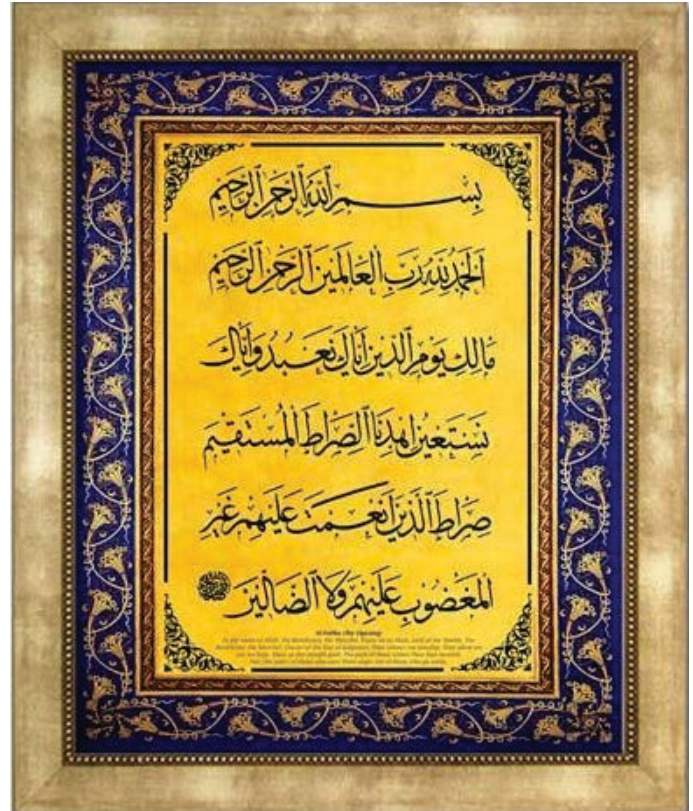 بسم الله الرحمن الرحيم
الحمد لله رب العالمين الرحمن الرحيم
مالك يوم الدين اياك نعبد واياك
نستعين اهدنا الصراط المستقيم
صراط الذين انعمت عليهم غير
المغضوب عليهم ولا الضالين
Al-Fatiha (The Opening)